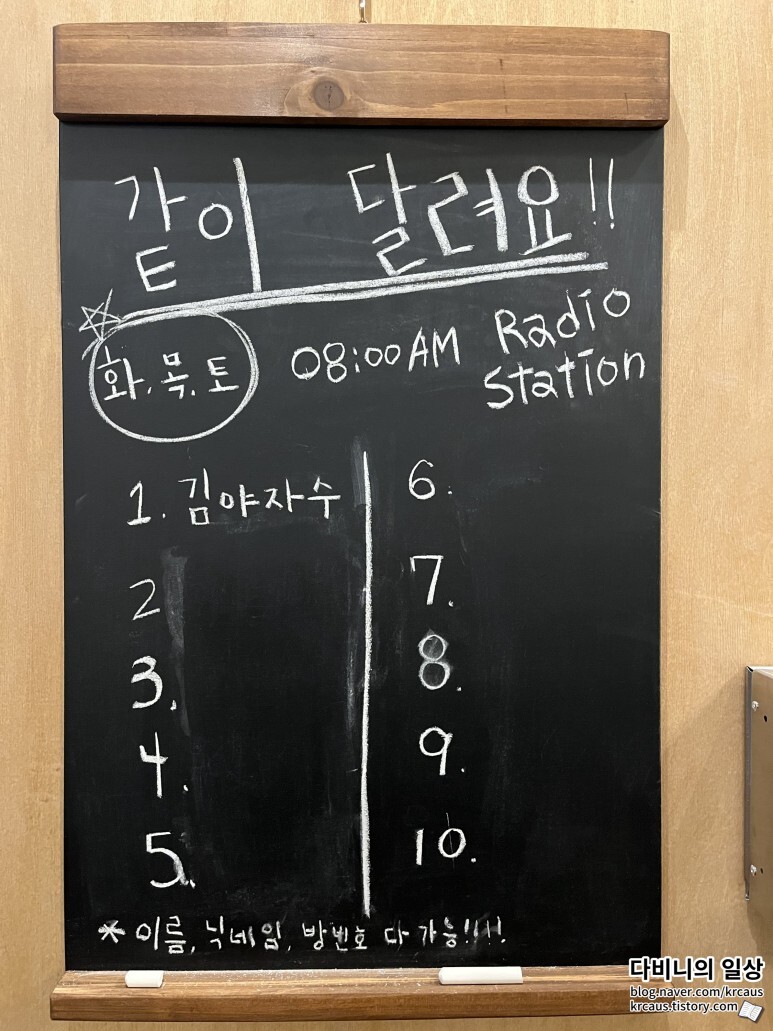 같이 달려요!!
화.목.토 08:00AM Radio Station
1. 김야자수
2
3.
4.
5.
6.
7.
8.
9.
10.
* 이름, 닉네임, 방번호 다 가능!!!
다비니의 일상
blog.naver.com/krcaus
krcaus.tistory.com